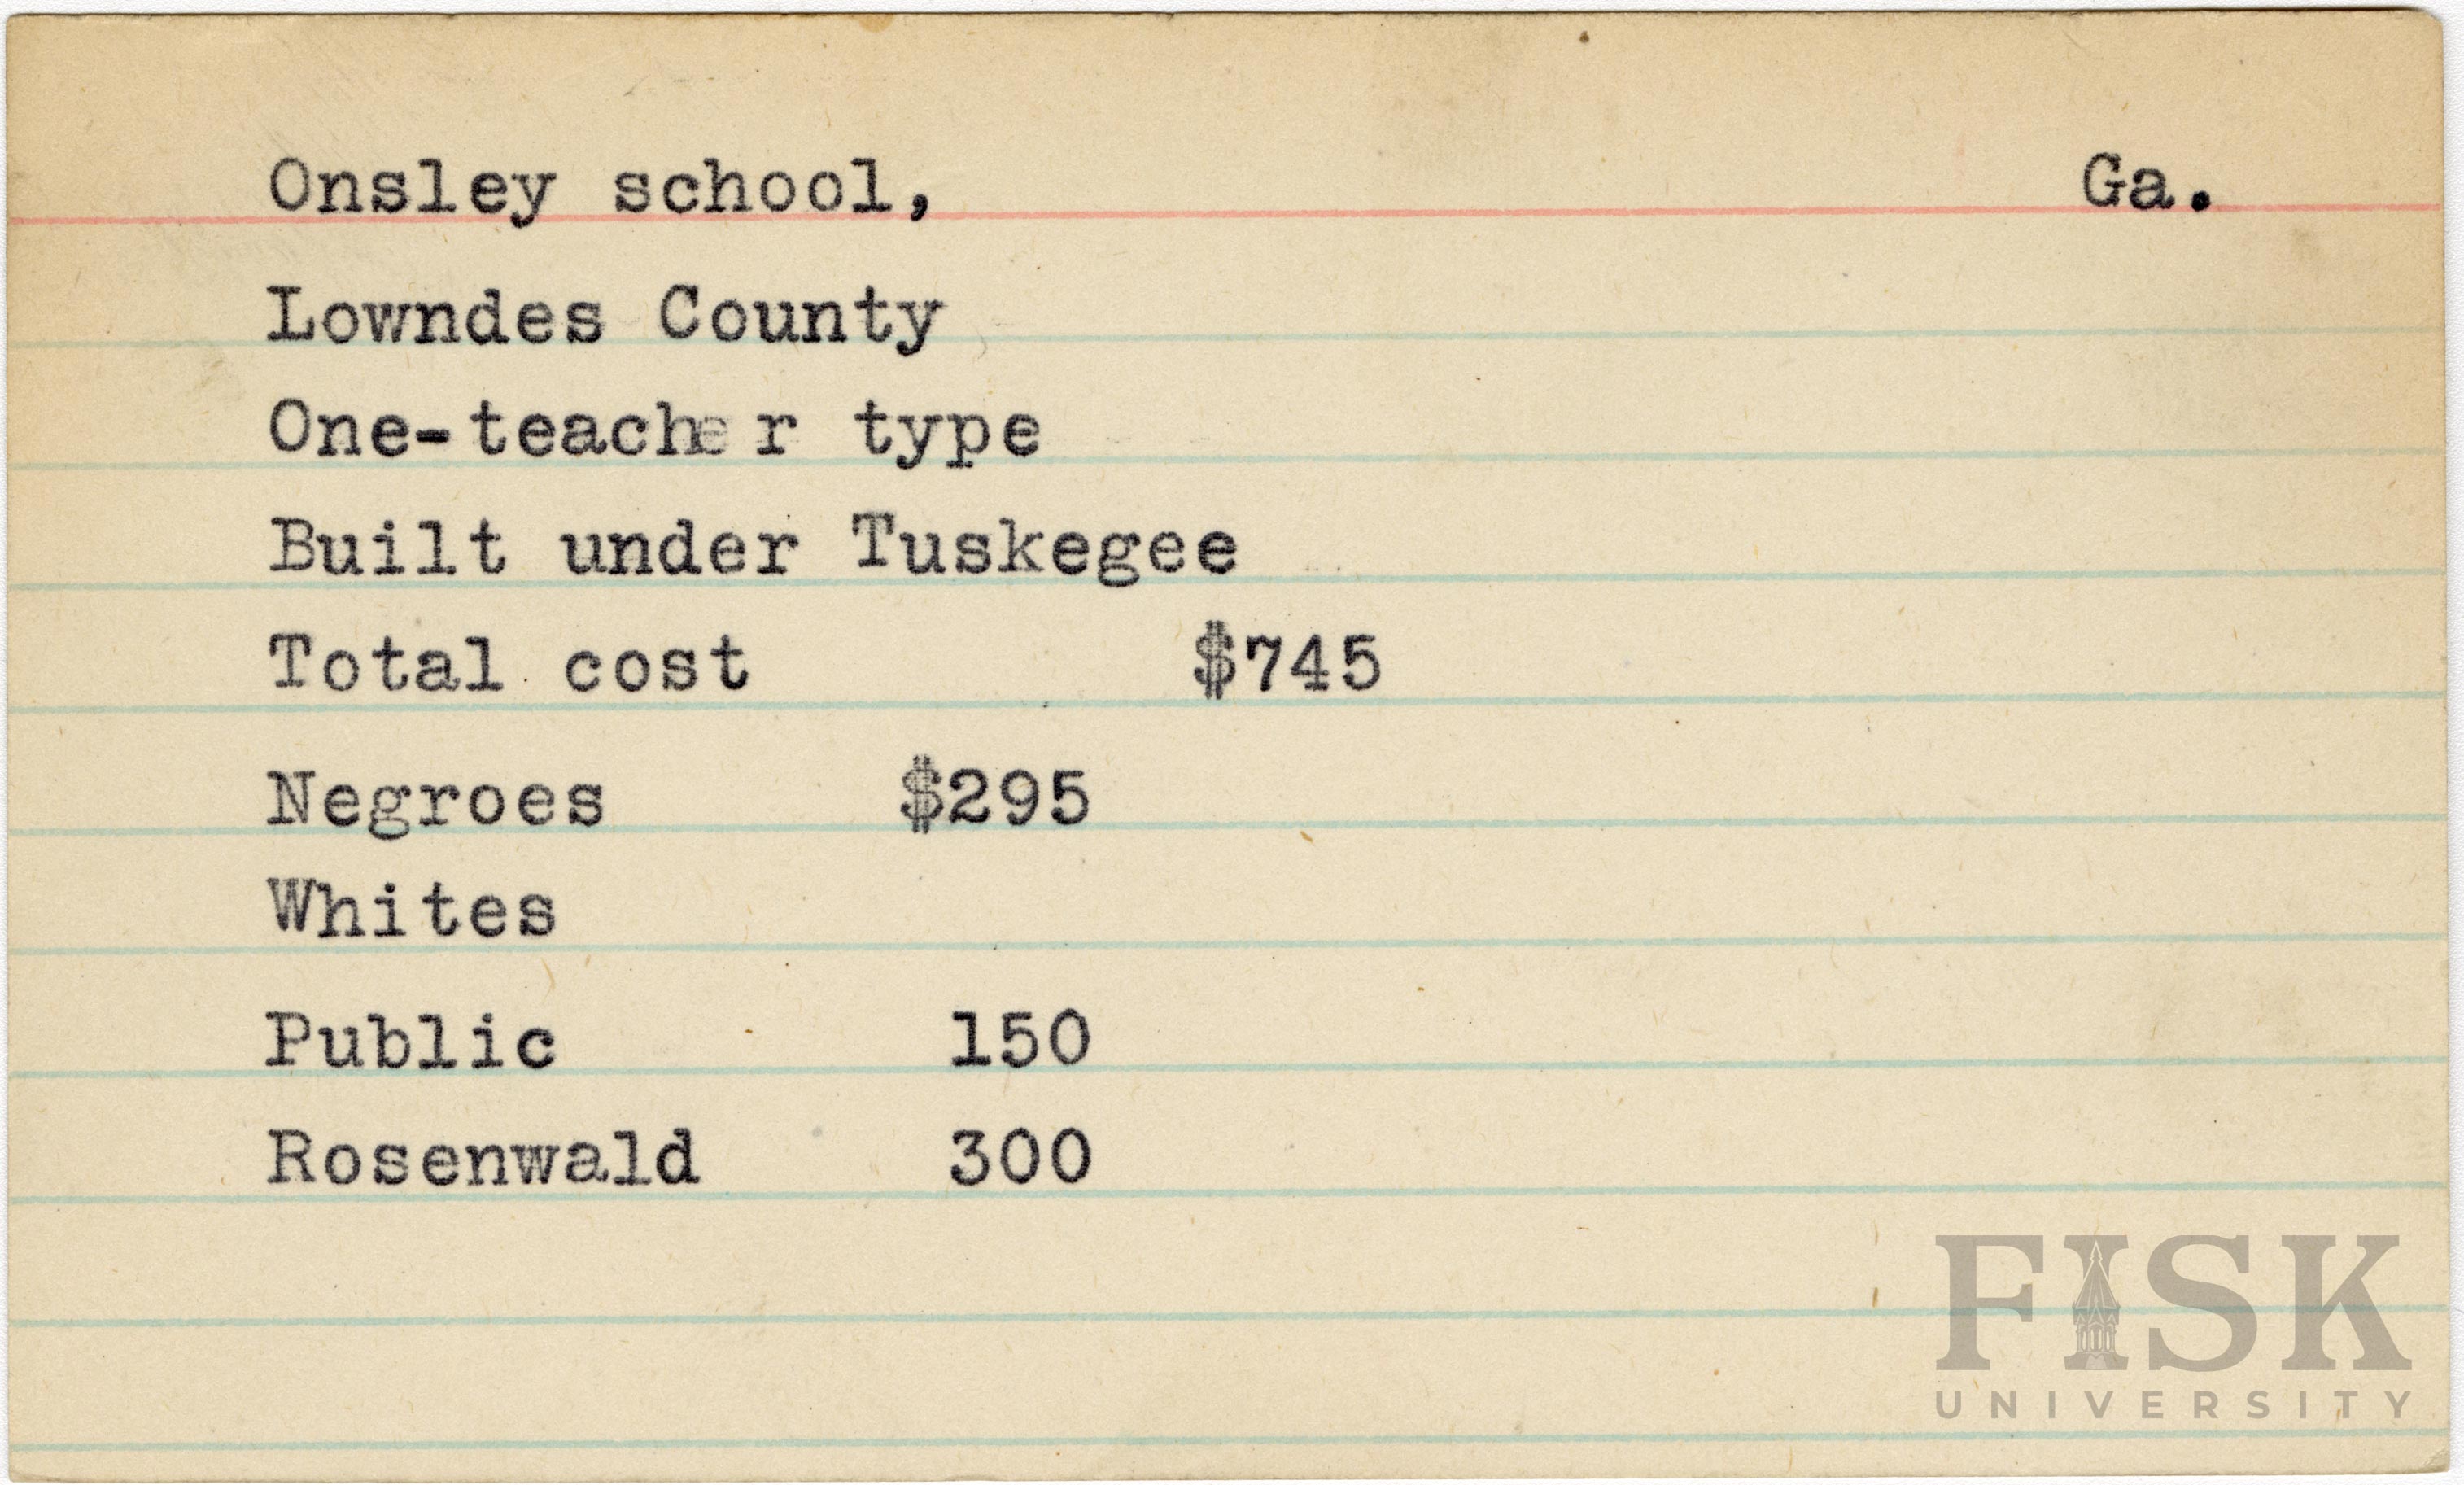 Onsley school, Ga.
Lowndes County
One-teacher type
Built under Tuskegee
Total cost $745
Negroes $295
Whites
Public 150
Rosenwald 300
FISK
UNIVERSITY